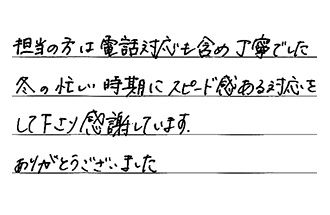 担当の方は電話対応も含め丁寧でした
冬の忙しい時期にスピード感ある対応を
して下さり感謝しています.
ありがとうございました